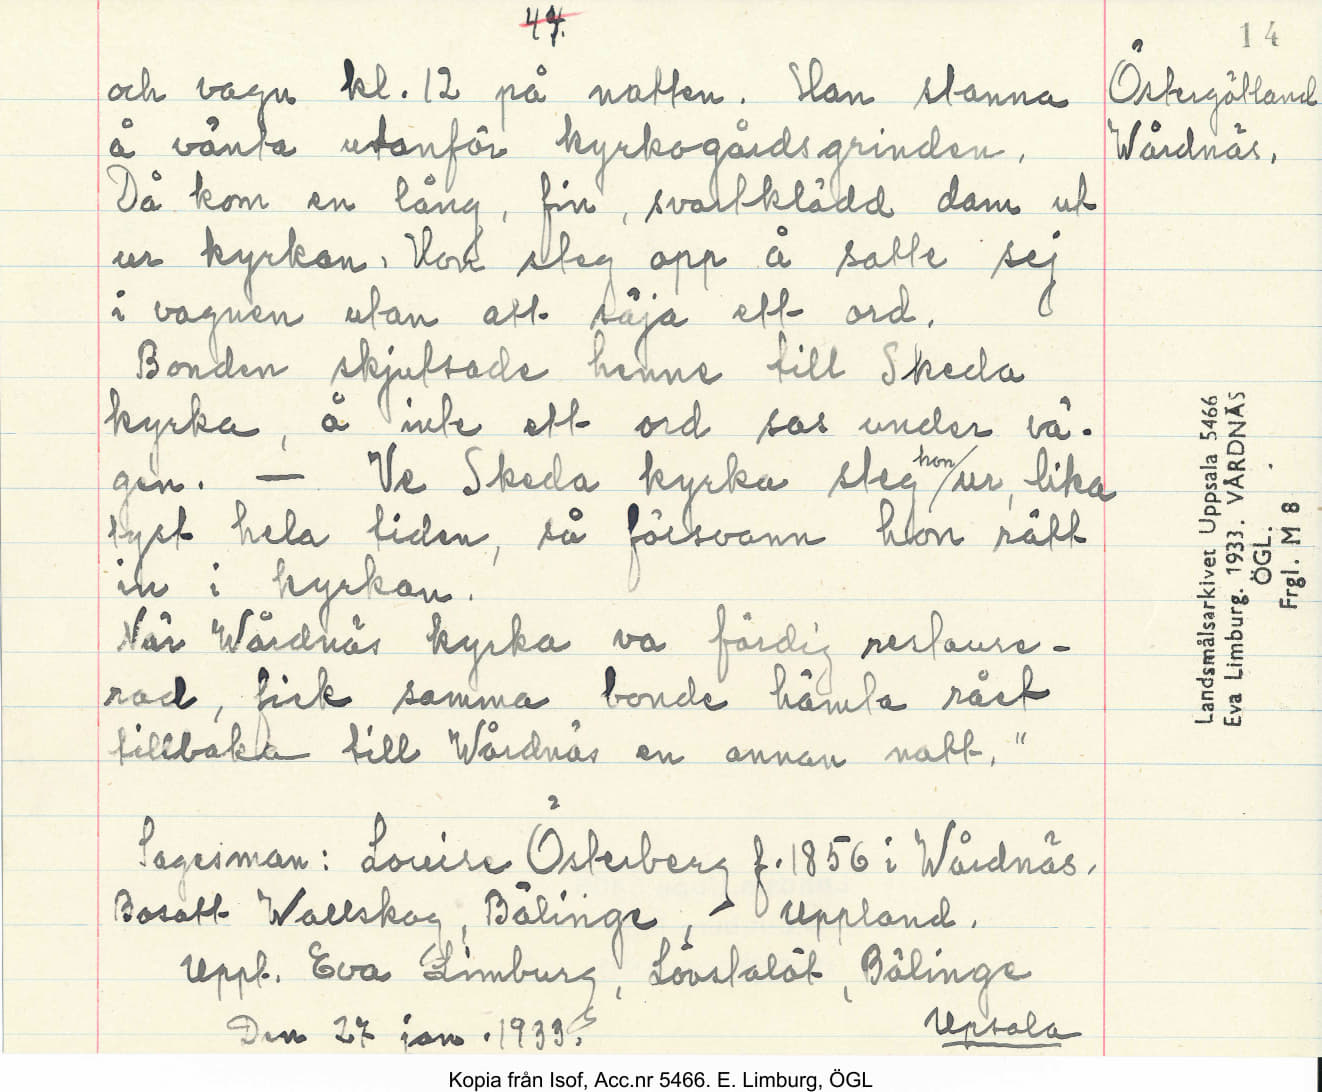 47.
14
och vagn kl. 12 på natten. Han stanna
å vänta utanför kyrkogårdsgrinden.
Då kom en lång, fin, svartklädd dam ut
ur kyrkan. Hon steg opp å satte sej
i vagnen utan att säja ett ord.
Bonden skjutsade henne till Skeda
kyrka, å inte ett ord sas under vä-
gen. — Ve Skeda kyrka steg hon ur, lika
tyst hela tiden, så försvann hon rätt
in i kyrkan.
När Wårdnäs kyrka va färdig restaure-
rad, fick samma bonde hämta rået
tillbaka till Wårdnäs en annan natt."
Sagesman: Louise Österberg f. 1856 i Wårdnäs.
Bosatt Wallskog, Bälinge, - Uppland.
Uppt. Eva Limburg, Lövstalöt, Bälinge
Den 27 jan. 1933.
Upsala
Östergötland
Wårdnäs.
Landsmålsarkivet Uppsala 5466
Eva Limburg. 1933. VÅRDNÄS
ÖGL.
Frgl. M 8
Kopia från Isof, Acc.nr 5466. E. Limburg, ÖGL